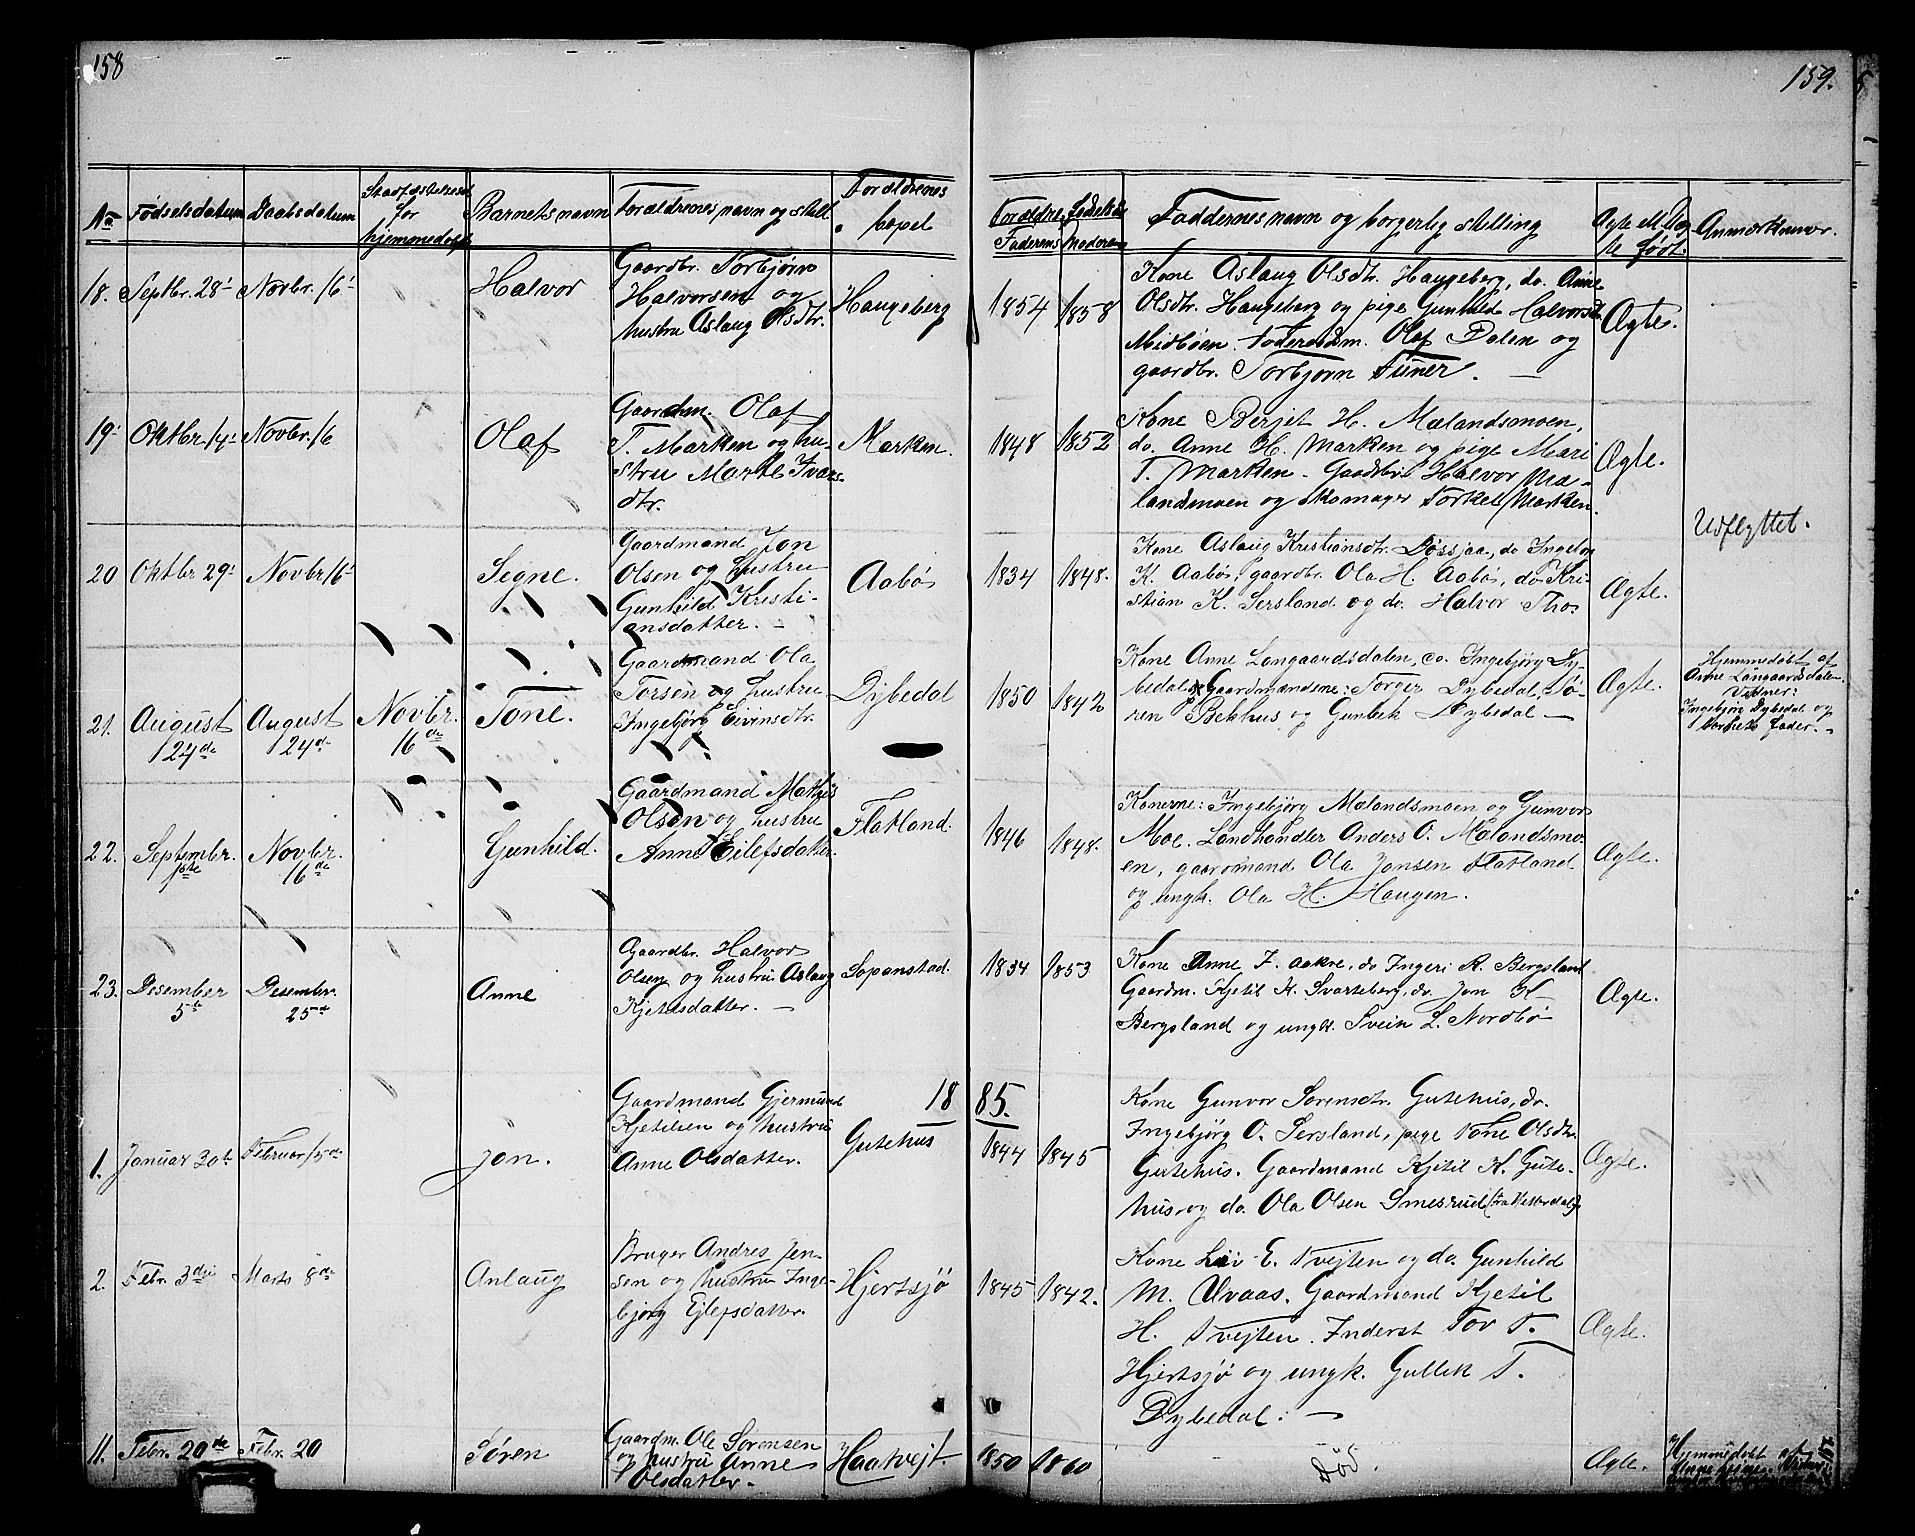 158
159.
No Fødselsdatum Daabsdatum Stadfæstelsesd. for hjemmedøbt Barnets navn Forældrenes navn og still. Forældrenes bopel
Forældre Fødselsaar Faderens Moderens Faddernes navn og borgerlig stilling Ægte el. Uægte født. Anmærkninger.
18. Septbr. 28 Novbr. 16 Halvor
Gaardbr. Torbjørn
Halvorsen og
hustru Aslaug Olsdtr.
Haugeberg
1854 1858
Kone Aslaug Olsdtr. Haugeberg, do. Anne
Olsdtr. Haugeberg og pige Gunhild Halvorsd.
Midbøen. Føderaadsm. Olaf Dalen og
gaardbr. Torbjørn Funer. —
Ægte.
19. Oktbr. 14. Novbr. 16 Olaf
Gaardm. Olaf
T. Marken og hu-
stru Marte Ivars-
dtr.
Marken.
1848 1852
Kone Berjet H. Mælandsmoen,
do. Anne H. Marken og pige Mari
T. Marken. Gaardbr. Halvor Mæ-
landsmoen og Skomager Torkel Marken.
Ægte.
Udflyttet.
20 Oktbr 29. Novbr 16 Signe.
Gaardmand Jon
Olsen og hustru
Gunhild Kristi-
ansdatter. —
Aabø
1834 1848.
Kone Aslaug Kristiansdtr. Bøssjaa, do Ingebor
K. Aabø, gaardbr. Ola H. Aabø, do Kri-
stian K. Sersland og do. Halvor Tho.
Ægte.
21. August 24de August 24de Novbr. 16de Tone.
Gaardmand Ola
Torsen og hustru
Ingebjørg Eivinsdtr.
Dybedal
1850 1842
Kone Anne Langaardsdalen, do. Ingebjørg Dy-
bedal. Gaardmændene: Torger Dybedal, Sø-
ren Bekhus og Gunlek Dybedal —
Ægte.
Hjemmedøbt af
Anne Langaardsdalen
Vidner:
Ingebjørg Dybedal og
barnets Fader. —
22. Septembr. Novbr. 16de Gunhild.
Gaardmand Mathis
Olsen og hustru
Anne Eilefsdatter.
Flatland.
1846 1848.
Konerne: Ingebjørg Mælandsmoen og Gunvor
Moe. Landhandler Anders O. Mælandsmo-
en, gaardmand Ola Jonsen Flatland
og ungk. Ola H. Haugen.
Ægte.
23. Desember 5te Desember 25de Anne
Gaardbr. Halvor
Olsen og hustru Aslaug
Kjetilsdatter. —
Sopanstad.
1834 1853
Kone Anne J. Aakre, do Ingeri R. Bergsland
Gaardm. Kjetil H. Svarteberg, do. Jon K.
Bergsland og ungk. Svein L. Nordbø
Ægte.
1885.
1. Januar 30te Februar 15de Jon.
Gaardmand Gjermund
Kjetilsen og hustru
Anne Olsdatter.
Gutehus
1844 1845
Kone Gunvor Sørensdtr. Gutehus, do.
Ingebjørg O. Sersland, pige Tone Olsdtr.
Gutehus. Gaardmand Kjetil K. Gute-
hus, og do. Ola Olsen Smesrud (fra Hitterdal).
Ægte.
2. Febr. 3die Marts 8de Anlaug
Bruger Andres Jen-
sen og hustru Inge-
bjørg Ejlefsdatter.
Hjertsjø
1845 1842.
Kone Liv E. Tvejten og do. Gunhild
M. Øvaas. Gaardmand Kjetil
H. Tvejten. Inderst Tov T.
Hjertsjø og ungk. Gullek T.
Dybedal. —
Ægte.
11. Febr. 20de Febr. 20 Søren
Gaardm. Ole Sørensen
og hustru Anne
Olsdatter.
Haatvejt
1850 1860
Død.
Ægte.
Hjemmedøbt af